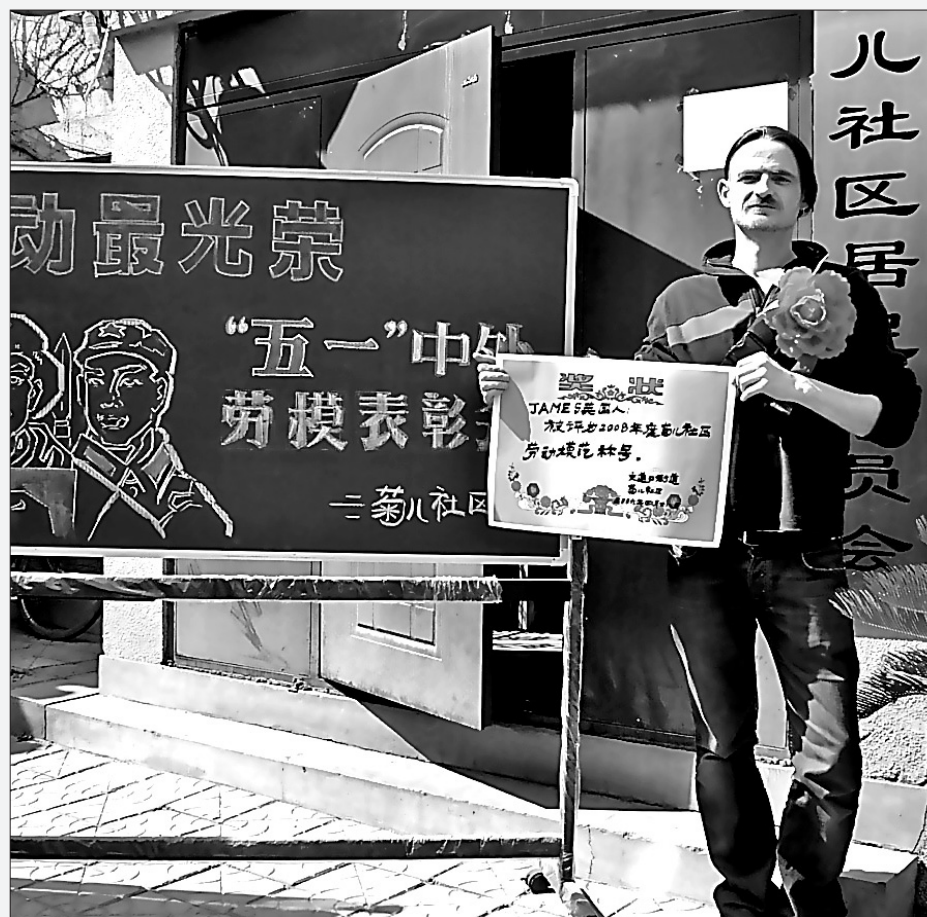 动最光荣
“五一”中外
劳模表彰
菊儿社区
奖状
JAMES英国人:
被评为2008年度菊儿社区
劳动模范称号。
交道口街道
菊儿社区
儿社区居民员会